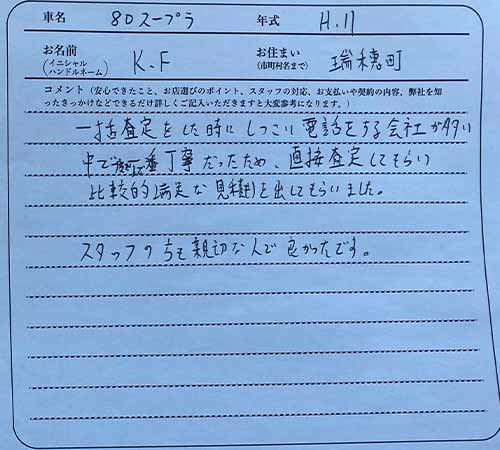 車名 80スープラ 年式 H.11
お名前 (イニシャル ハンドルネーム) K.F お住まい (市町村名まで) 瑞穂町
コメント（安心できたこと、お店選びのポイント、スタッフの対応、お支払いや契約の内容、弊社を知
ったきっかけなどできるだけ詳しくご記入いただきますと大変参考になります。）
一括査定をした時にしつこい電話をする会社が多い
中で一番丁寧だったため、直接査定してもらい
比較的満足な見積りを出してもらいました。
スタッフの方も親切な人で良かったです。